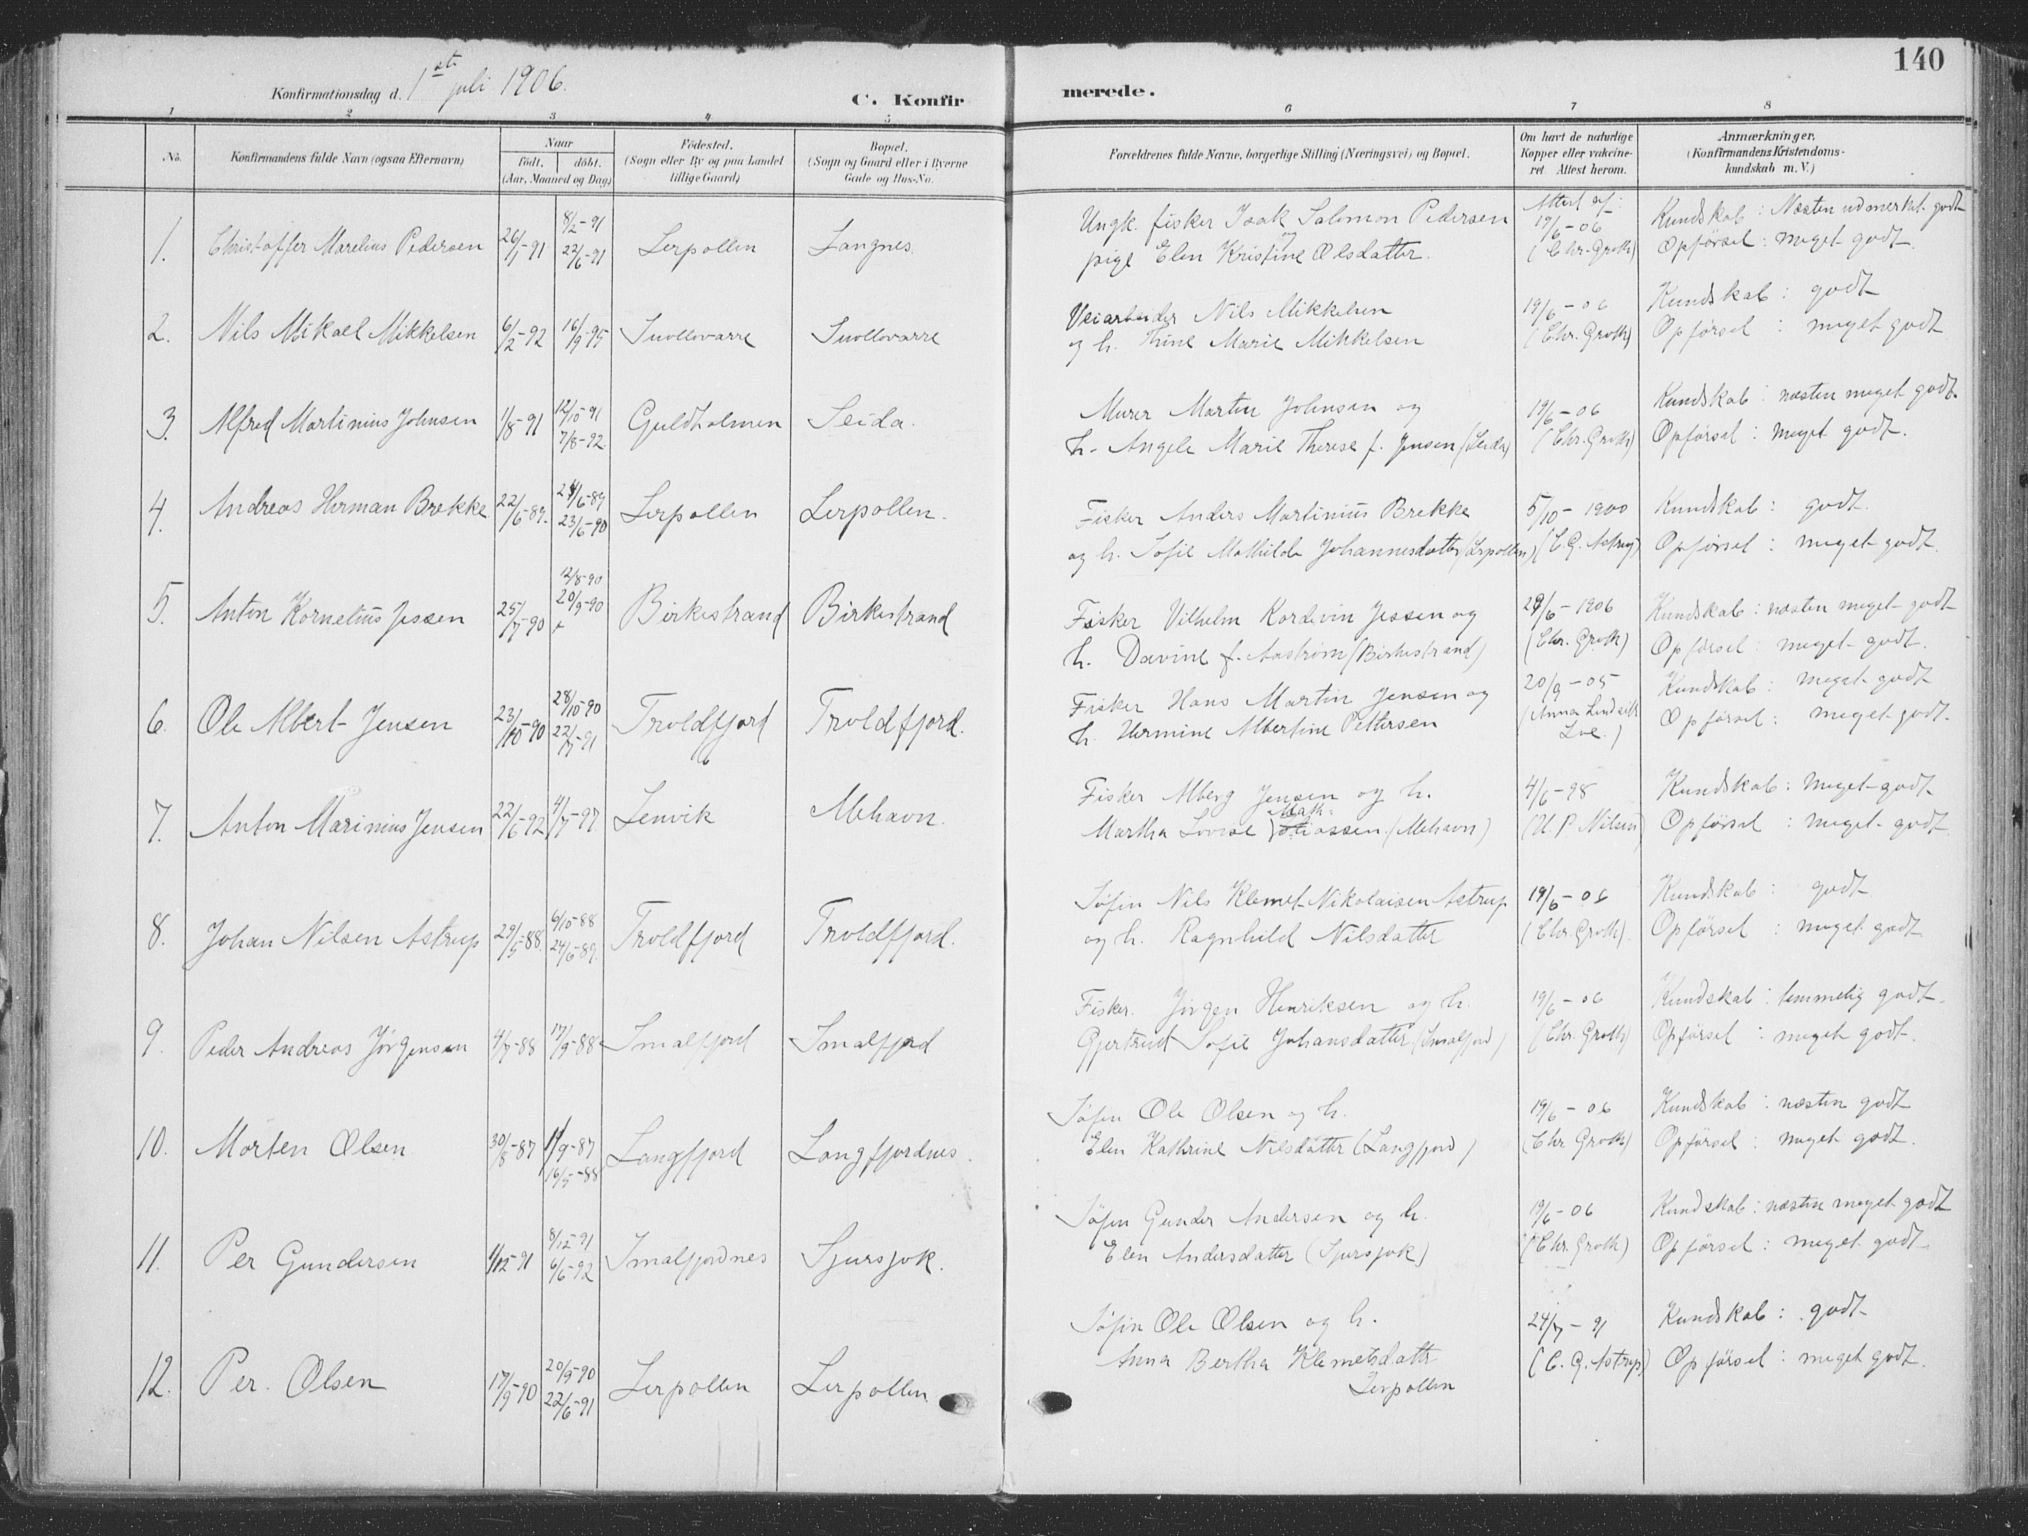 140
Konfirmationsdag d. 1ste juli 1906.
C. Konfirmerede.
1 2 3 4 5 6 7 8
No. Konfirmandens fulde Navn (ogsaa Efternavn) Naar født. døbt. (Aar, Maaned og Dag) Fødested. (Sogn eller By og paa Landet tillige Gaard) Bopæl. (Sogn og Gaard eller i Byerne Gade og Hus-No. Forældrenes fulde Navne, borgerlige Stilling (Næringsvei) og Bopæl. Om havt de naturlige Kopper eller vakcineret. Attest herom. Anmærkninger. (Konfirmandens Kristendomskundskab m. V.)
1. Christoffer Marelius Pedersen 26/1-91 8/2-91 Lerpollen Langnes. Ungk. fisker Isak Salomon Pedersen Attest af: 19/6-06 Kundskab: Næsten udmerket godt
22/6-91 og pige Elen Kristine Olsdatter. (Chr. Groth) Opførsel: meget godt.
2. Nils Mikael Mikkelsen 6/2-92 16/9-95 Suollovarre Suollovarre Veiarbeider Nils Mikkelsen 19/6-06 Kundskab: godt
og h. Trine Marie Mikkelsen (Chr. Groth) Opførsel: meget godt
3. Alfred Martinius Johnsen 1/8-91 12/10-91 Guldholmen Seida. Murer Martin Johnsen og 19/6-06 Kundskab: næsten meget godt.
7/8-92 h. Angele Marie Therese f. Jensen (Seida) (Chr. Groth) Opførsel: meget godt.
4. Andreas Herman Brekke 22/5-89. 24/6-89 Lerpollen Lerpollen. Fisker Anders Martinius Brekke 5/10-1900 Kundskab: godt.
23/6-90 og h. Sofie Mathilde Johannesdatter (Lerpollen) (C. G. Astrup) Opførsel: meget godt.
5. Anton Kornelius Jessen 25/7-90 12/8-90 Birkestrand Birkestrand Fisker Vilhelm Kordevin Jessen og 29/6-1906 Kundskab: næsten meget godt
20/9-90 h. Davine f. Aastrøm (Birkestrand) (Chr. Groth) Opførsel: meget godt.
6. Ole Albert Jensen 23/10-90 28/10-90 Troldfjord Troldfjord. Fisker Hans Martin Jensen og 20/9-05 Kundskab: meget godt
22/7-91 h. Hermine Albertine Pettersen (Anna Lindseth Lve.) Opførsel: meget godt.
7. Anton Marinius Jensen 22/6-92 4/7-97. Lenvik Mehavn. Fisker Alberg Jensen og h. 4/6-98 Kundskab: meget godt
Martha Lovise Mathiassen (Mehavn) (U. P. Nilsen) Opførsel: meget godt
8. Johan Nilsen Astrup 29/5-88. 9/10-88 Troldfjord Troldfjord. Søfin Nils Klemet Nikolaisen Astrup 19/6-06 Kundskab: godt
24/6-89. og h. Ragnhild Nilsdatter (Chr. Groth). Opførsel: meget godt
9. Peder Andreas Jørgensen 4/7-88 17/9-88 Smalfjord Smalfjord Fisker. Jørgen Henriksen og h. 19/6-06 Kundskab: temmelig godt.
Gjertrud Sofie Johansdatter (Smalfjord) (Chr. Groth) Opførsel: meget godt.
10. Morten Olsen 30/8-87 11/9-87 Langfjord Langfjordnes. Søfin Ole Olsen og h. 19/6-06 Kundskab: næsten godt
16/5-88 Elen Kathrine Nilsdatter (Langfjord) (Chr Groth) Opførsel: meget godt.
11. Per Gundersen 1/12-91 8/12-91 Smalfjordnes Sjursjok. Søfin Gunder Andersen og h. 19/6-06 Kundskab: næsten meget godt
6/6-92 Elen Andersdatter (Sjursjok) (Chr. Groth) Opførsel: meget godt.
12. Per. Olsen 17/9-90 20/9-90 Lerpollen Lerpollen Søfin Ole Olsen og h. 24/7-91 Kundskab: godt
22/6-91 Anna Bertha Klemetsdatter (C. G. Astrup) Opførsel: meget godt.
Lerpollen